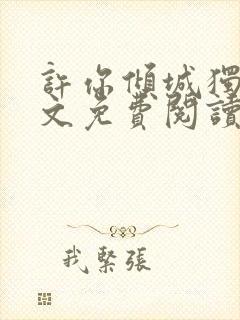 許你傾城獨
文免費閱讀
我緊張